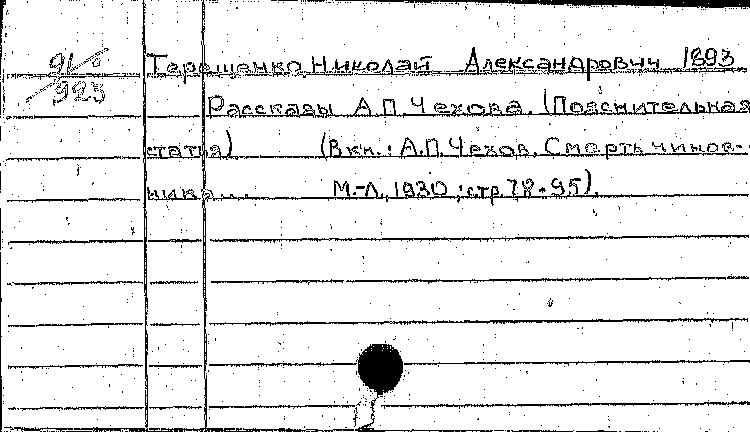 91/8
923
Геращенко Николай Александрович 1893
Рассказы А.П.Чехова. (Пояснительная
статья) (В кн.: А.П.Чехов. Смерть чинов-
ника... М.-Л., 1930, стр. 78-95).